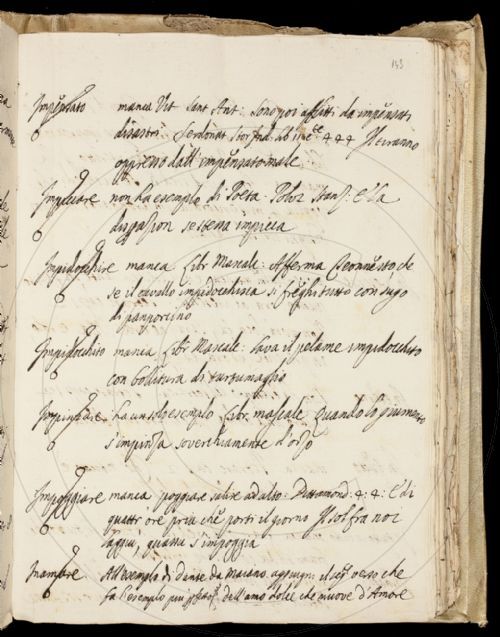 153
Impensato manca Vit Sant Ant: Sono poi afflitti da impensati
disastri Serdonat Stor Ind. lib 11 444 Il tiranno
oppresso dall'impensato male
Impicciare non ha esempio di Poeta Poliz Stanz: E la
sestessa impiccia
Impidocchire manca libr Mascale: Afferma che
se il cavallo impidocchisca si freghi tutto con sugo
di panporcino
Impidocchito manca libr Mascale: lava il pelame impidocchito
con bollitura di
Impinzare ha un solo esempio libr mascale Quando lo giumento
s'impinza soverchiamente d'orzo
Impoggiare manca poggiare salire ad alto: Dittamond: 4: 4: E di
quattr'ore pria che porti il giorno Il sol fra noi
laggiu, quassu s'impoggia
Inamare All'esempio di Dante da Maiano aggiugni il verso che
fa l'esempio piu dell'amo dolce che muove d'Amore